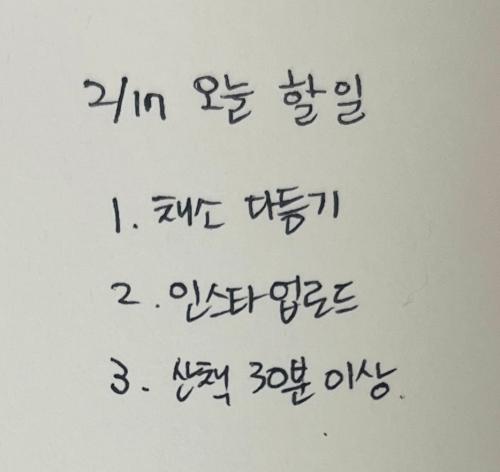 2/17 오늘 할 일
1. 채소 다듬기
2. 인스타 업로드
3. 산책 30분 이상.